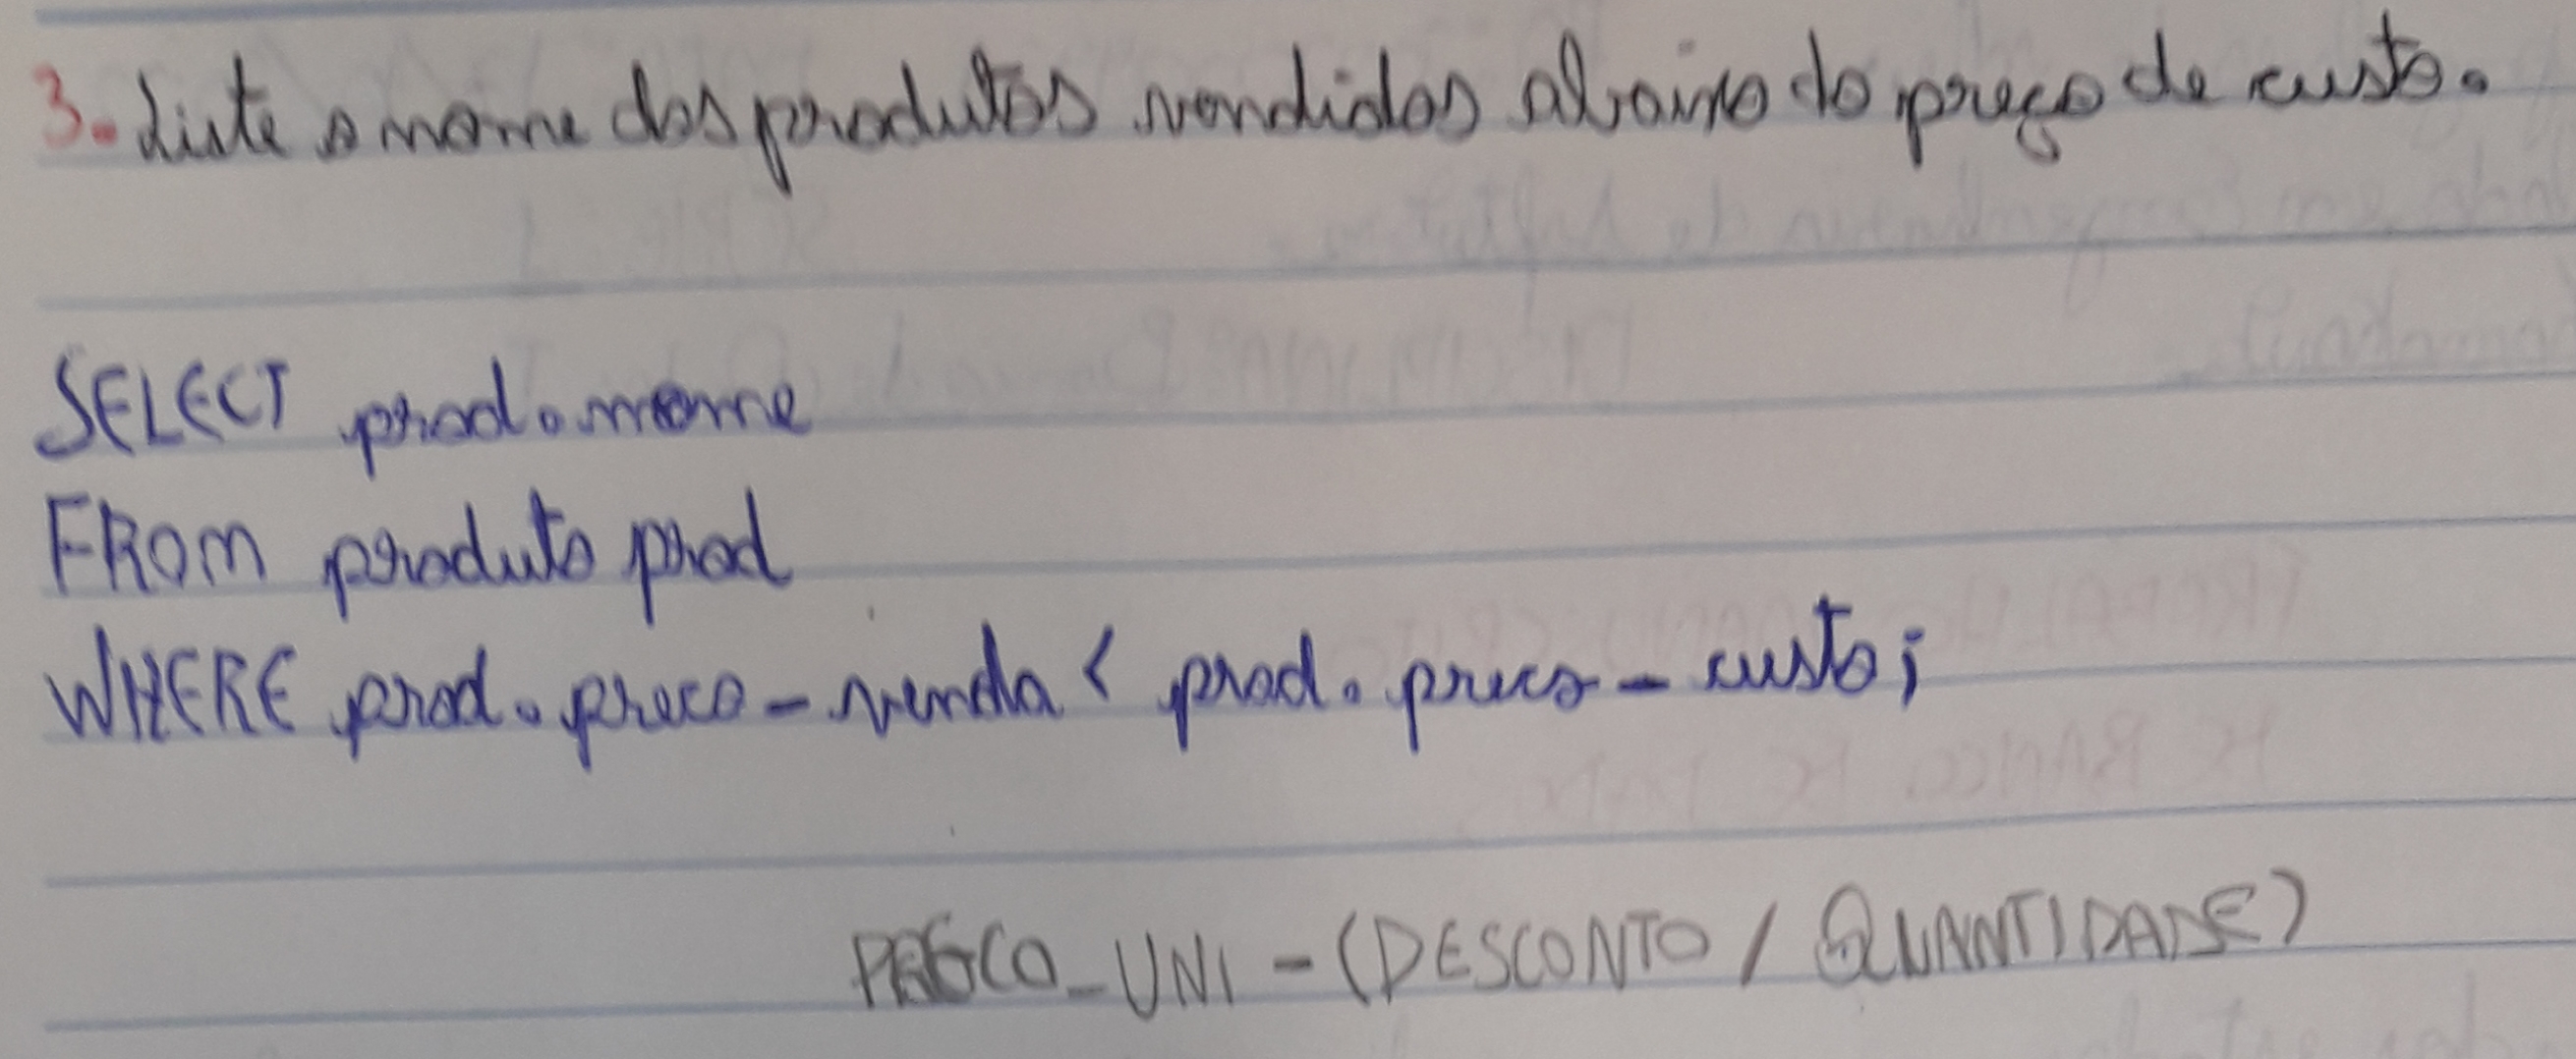 3. Liste o nome dos produtos vendidos abaixo do preço de custo.
SELECT prod.nome
FROM produto prod
WHERE prod.preco_venda < prod.preco_custo;
PRECO_UNI - (DESCONTO / QUANTIDADE)